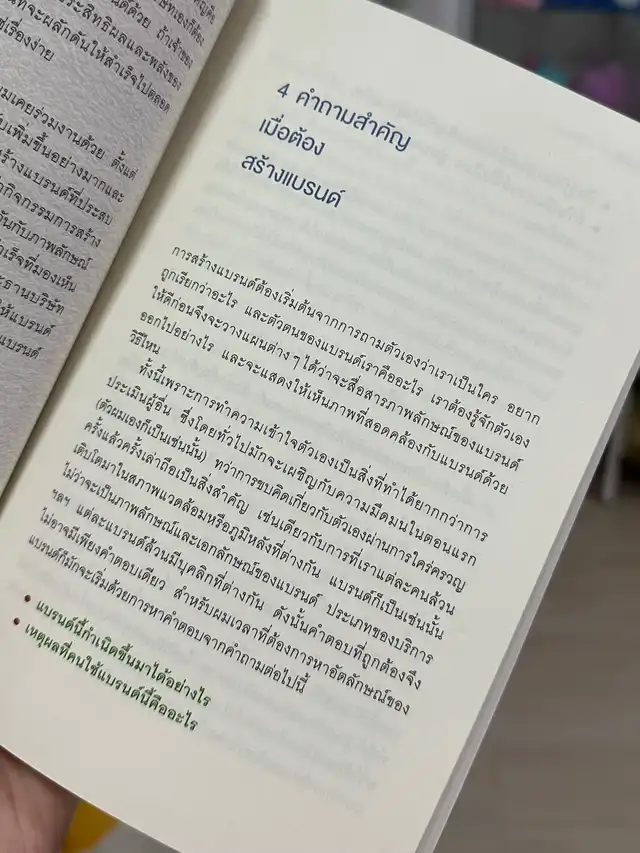 ษิทธิผลและพลังของ
ที่จะผลักดันให้สำเร็จไปตลอด
เรื่องง่าย
มเคยร่วมงานด้วย ตั้งแต่
เพิ่มขึ้นอย่างมากและ
ร้างแบรนด์ที่ประสบ
ากิจกรรมการสร้าง
กันกับภาพลักษณ์
ำเร็จที่มองเห็น
ะธานบริษัท
ให้แบรนด์
แบรนด์
4 คำถามสำคัญ
เมื่อต้อง
สร้างแบรนด์
การสร้างแบรนด์ต้องเริ่มต้นจากการถามตัวเองว่าเราเป็นใคร อยาก
ถูกเรียกว่าอะไร และตัวตนของแบรนด์เราคืออะไร เราต้องรู้จักตัวเอง
ให้ดีก่อนจึงจะวางแผนต่างๆ ได้ว่าจะสื่อสารภาพลักษณ์ของแบรนด์
ออกไปอย่างไร และจะแสดงให้เห็นภาพที่สอดคล้องกับแบรนด์ด้วย
วิธีไหน
ทั้งนี้เพราะการทำความเข้าใจตัวเองเป็นสิ่งที่ทำได้ยากกว่าการ
ประเมินผู้อื่น ซึ่งโดยทั่วไปมักจะเผชิญกับความมืดมนในตอนแรก
(ตัวผมเองก็เป็นเช่นนั้น) ทว่าการขบคิดเกี่ยวกับตัวเองผ่านการใคร่ครวญ
ครั้งแล้วครั้งเล่าถือเป็นสิ่งสำคัญ เช่นเดียวกับการที่เราแต่ละคนล้วน
เติบโตมาในสภาพแวดล้อมหรือภูมิหลังที่ต่างกัน แบรนด์ก็เป็นเช่นนั้น
ไม่ว่าจะเป็นภาพลักษณ์และเอกลักษณ์ของแบรนด์ ประเภทของบริการ
ฯลฯ แต่ละแบรนด์ล้วนมีบุคลิกที่ต่างกัน ดังนั้นคำตอบที่ถูกต้องจึง
ไม่อาจมีเพียงคำตอบเดียว สำหรับผมเวลาที่ต้องการหาอัตลักษณ์ของ
แบรนด์ก็มักจะเริ่มด้วยการหาคำตอบจากคำถามต่อไปนี้
• แบรนด์นี้กำเนิดขึ้นมาได้อย่างไร
• เหตุผลที่คนใช้แบรนด์นี้คืออะไร